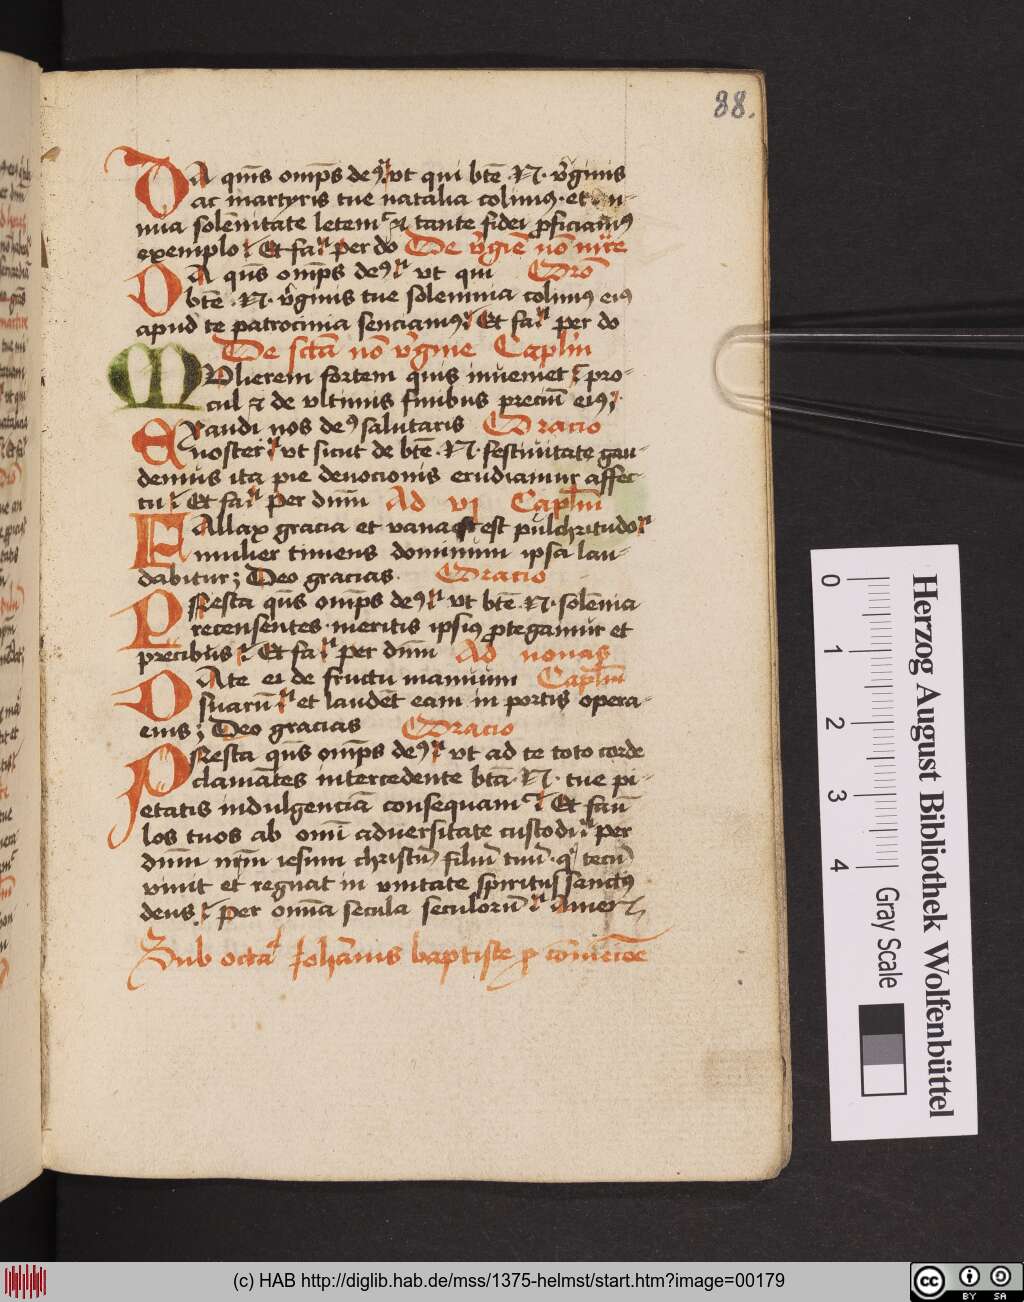 88.
DA qm̄s omp̄s deꝰ ut qui btē N. v̓ginis
ac martyris tue natalia colimus et
nua solēnitate letemͬ ⁊ tante fidei ꝓficiamꝰ
exemplo Et fa per do De v̓gīe nō mr̄e
DA qm̄s omp̄s deꝰ ut qui Orō
btē N. v̓ginis tue solennia colimꝰ eiꝰ
apud te patrocinia senciamꝰ Et fa per do
De sctā nō v̓gine Caplm̄
MUlierem fortem quis inueniet pro-
cul ⁊ de vltimis finibus preciū eiꝰ
EXaudi nos deꝰ salutaris Oracio
noster vt sicut de btē N. festiuitate gau-
demus ita pie deuocionis erudiamur affec
tu Et fa per dnm̄ Ad vj Caplm̄
FAllax gracia et vana est pulchritudo
mulier timens dominum ipsa lau-
dabitur; Deo gracias. Oracio
PResta qm̄s omp̄s deꝰ vt btē N. solēnia
recensentes meritis ipsiꝰ ꝓtegamur et
precibus Et fa per dnm̄ Ad nonas
DAte ei de fructu manuum Caplm̄
suarū et laudēt eam in portis opera
eius; Deo gracias Oracio
PResta qm̄s omp̄s deꝰ vt ad te toto corde
clamātes intercedente btā N. tue pi-
etatis indulgenciā consequamͬ Et famͮ
los tuos ab omī aduersitate custodi per
dnm nrm̄ iesum christū filiū tuū q tecū
viuit et regnat in vnitate spiritus sanctꝰ
deus per omīa secula seculorū Amen
Sub octā Johānis baptiste ꝓ
Herzog August Bibliothek Wolfenbüttel
Gray Scale
0 1 2 3 4
(c) HAB http://diglib.hab.de/mss/1375-helmst/start.htm?image=00179
cc BY SA